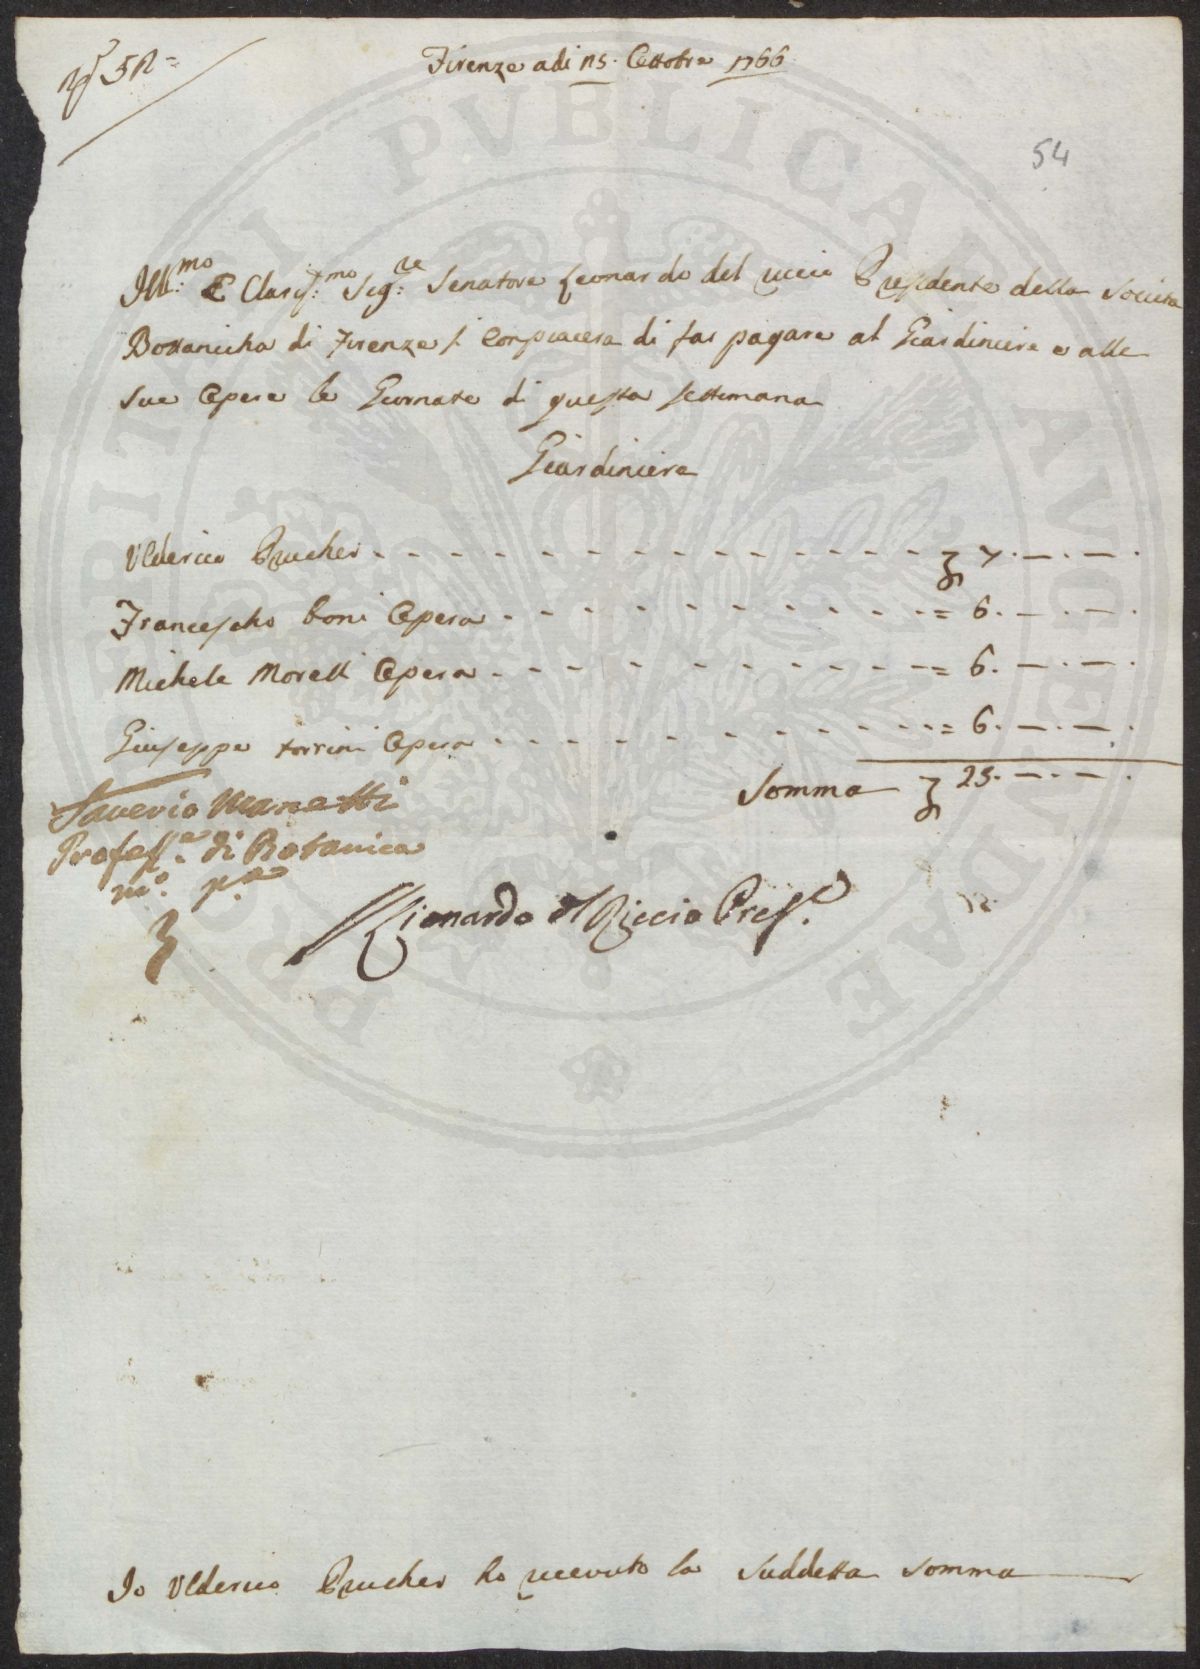 N.º 52=
Firenze adi 25. Ottobre 1766
54
Ill:mo E Clariss:mo Sig:re Senatore Leonardo del riccio Presidente della Societa
Bottanicha di Firenze si Conpiacera di far pagare al Giardiniere e alle
sue Opere le Giornate di questa settimana
Giardiniere
Ulderico Prucher - - - - - - - - - - - - - - - 7. — . — .
Francescho boni Opera - - - - - - - - - - - = 6. — . — .
Michele Morelli Opera - - - - - - - - - - - = 6. — . — .
Giuseppe torrini Opera - - - - - - - - - - - = 6. — . — .
Somma 25. — . — .
Saverio Manetti
Profess.e di Botanica
m.o p.a
Lionardo del Riccio Pres.e
Io Ulderico Prucher ho ricevuto la suddetta somma
PVBLICAE